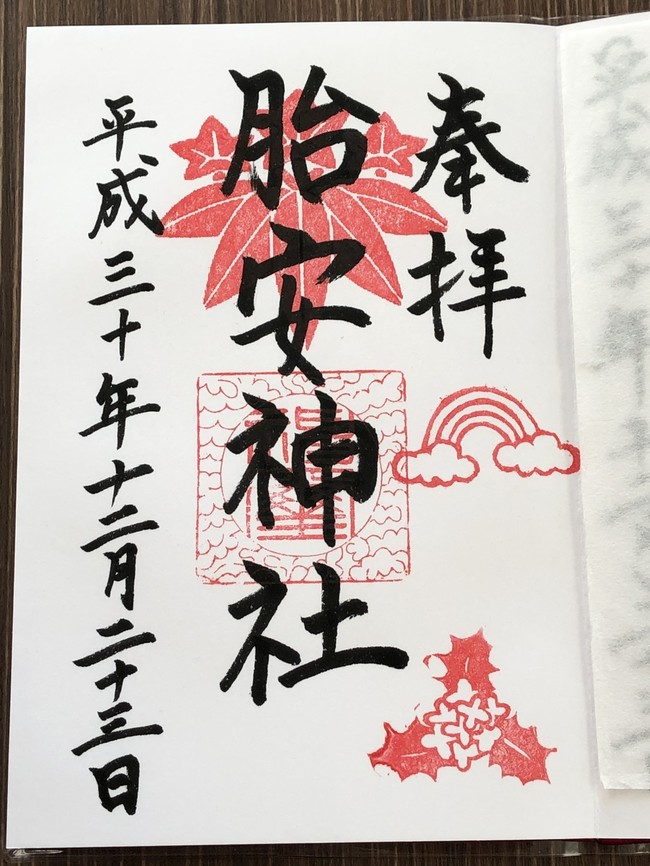 奉拝
胎安神社
平成三十年十二月二十三日